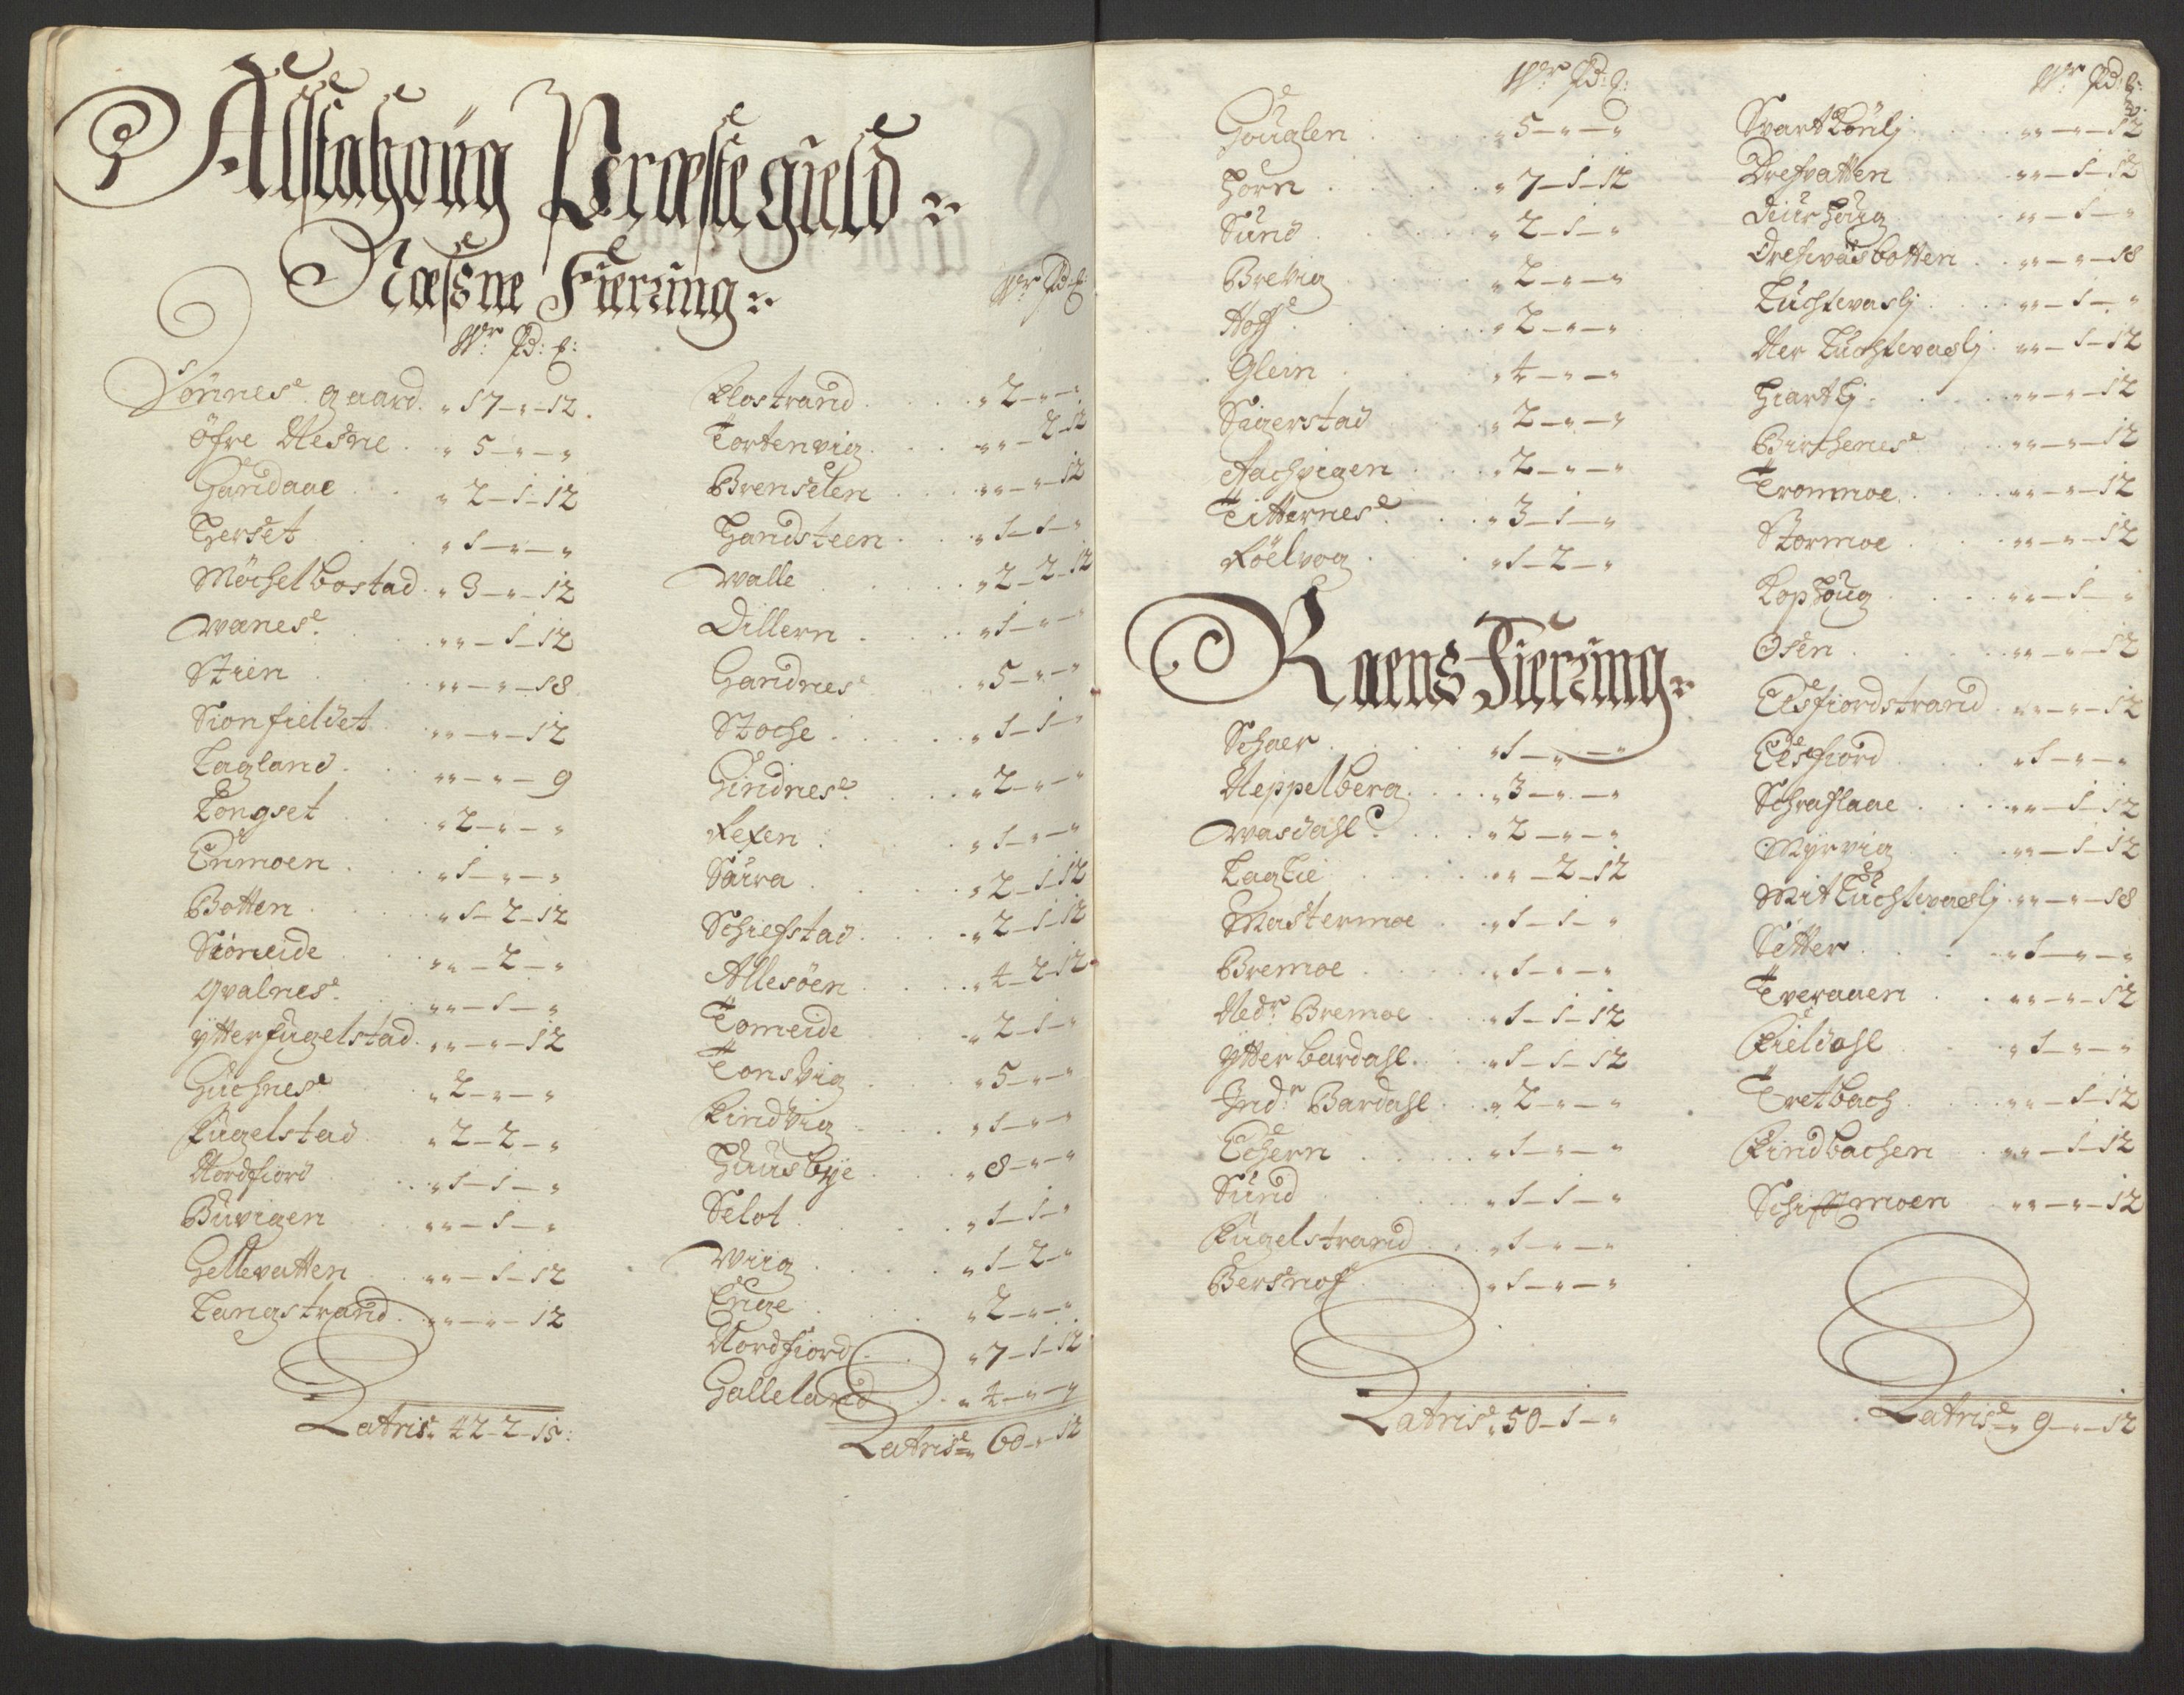 Alstahoug Præstegield
Næsne Fierring
Wr Pd: ℔:
Sönnes gaard. „ 17 — „ — 12.
Öfre Nesne „ 5 — „ — „
Handaae „ 2 — 1 — 12
Herset „ 1 — „ — „
Möchelbostad „ 3 — „ — 12
Wanes „ „ — 1 — 12
Stien „ „ — „ — 18
Sionfieldet „ „ — „ — 12
Lagland „ „ — „ — 9
Longset „ 2 — „ — „
Enmoen „ 1 — „ — „
Botten „ 1 — 2 — 12
Siöneide „ „ — 2 — „
Qvalnes „ „ — 1 — „
Ytterfugelstad „ „ — „ — 12
Huchnes „ 2 — „ — „
Fugelstad „ 2 — 2 — „
Nordfiord „ 1 — 1 — „
Buvigen „ „ — 1 — „
Hellevatten „ „ — 1 — 12
Langstrand „ „ — „ — 12
Latris 42 — 2 — 15:
Wr Pd: ℔:
Flostrand „ 2 — „ — „
Tortenvig „ „ — 2 — 12
Brenselen „ „ — „ — 12
Handsteen „ 1 — 1 — „
Walle „ 2 — 2 — 12
Dillern „ 1 — „ — „
Handnes „ 5 — „ — „
Stoche „ 1 — 1 — „
Hindnes „ 2 — „ — „
Fexen „ 1 — „ — „
Saura „ 2 — 1 — 12
Schiefstad „ 2 — 1 — 12
Allesöen „ 4 — 2 — 12
Tomeide „ 2 — 1 — „
Tonsvig „ 5 — „ — „
Findvig „ 1 — „ — „
Huusbye „ 8 — „ — „
Selot „ 1 — 1 — „
Wiig „ 1 — 2 — „
Enge „ 2 — „ — „
Nordfiord „ 7 — 1 — 12
Galleland „ 4 — „ — „
Latris „ 60 — „ — 12
Wr Pd: ℔:
Houglen „ 5 — „ — „
Horn „ 7 — 1 — 12
Sund „ 2 — 1 — „
Brevig „ 2 — „ — „
Hoff „ 2 — „ — „
Glein „ 4 — „ — „
Sigerstad „ 2 — „ — „
Aachvigen „ 2 — „ — „
Titternes „ 3 — 1 — „
Föelvog „ 1 — 2 — „
Raens Fierring
Schaer „ 1 — „ — „
Neppelberg „ 3 — „ — „
Wasdahl „ 2 — „ — „
Laglie „ „ — 2 — 12
Mastermoe „ 1 — 1 — „
Bremoe „ 1 — „ — „
Nedr Bremoe „ 1 — 1 — 12
Ytter bardahl „ 1 — 1 — 12
Indr Bardahl „ 2 — „ — „
Echern „ 1 — „ — „
Sund „ 1 — 1 — „
Fugelstrand „ 1 — „ — „
Bersnof „ 1 — „ — „
Latris „ 50 — 1 — „
Wr Pd: ℔:
Svartkönlj „ „ — „ — 12
Drefvatten „ „ — 1 — 12
Diurhoug „ „ — 1 — „
Drefvasbotten „ „ — „ — 18
Luchtvaslj „ „ — 1 — „
Ner Luchtevaslj „ „ — 1 — 12
Hiartlj „ „ — „ — 12
Birchenes „ „ — „ — 12
Trommoe „ „ — „ — 12
Stormoe „ „ — „ — 12
Kophoug „ „ — 1 — „
Osen „ „ — „ — 12
Elsfiordstrand „ „ — „ — 12
Elsfiord „ 1 — „ — „
Schraflaae „ „ — 1 — 12
Myrvig „ „ — 1 — 12
Mit Luchtevaslj „ „ — „ — 18
Sitter „ 1 — „ — „
Tveraaen „ „ — „ — 12
Fieldahl „ 1 — „ — „
Tretbach „ „ — 1 — 12
Findbachen „ „ — 1 — 12
Schistmoen „ „ — „ — 12
Latris „ 9 — „ — 12